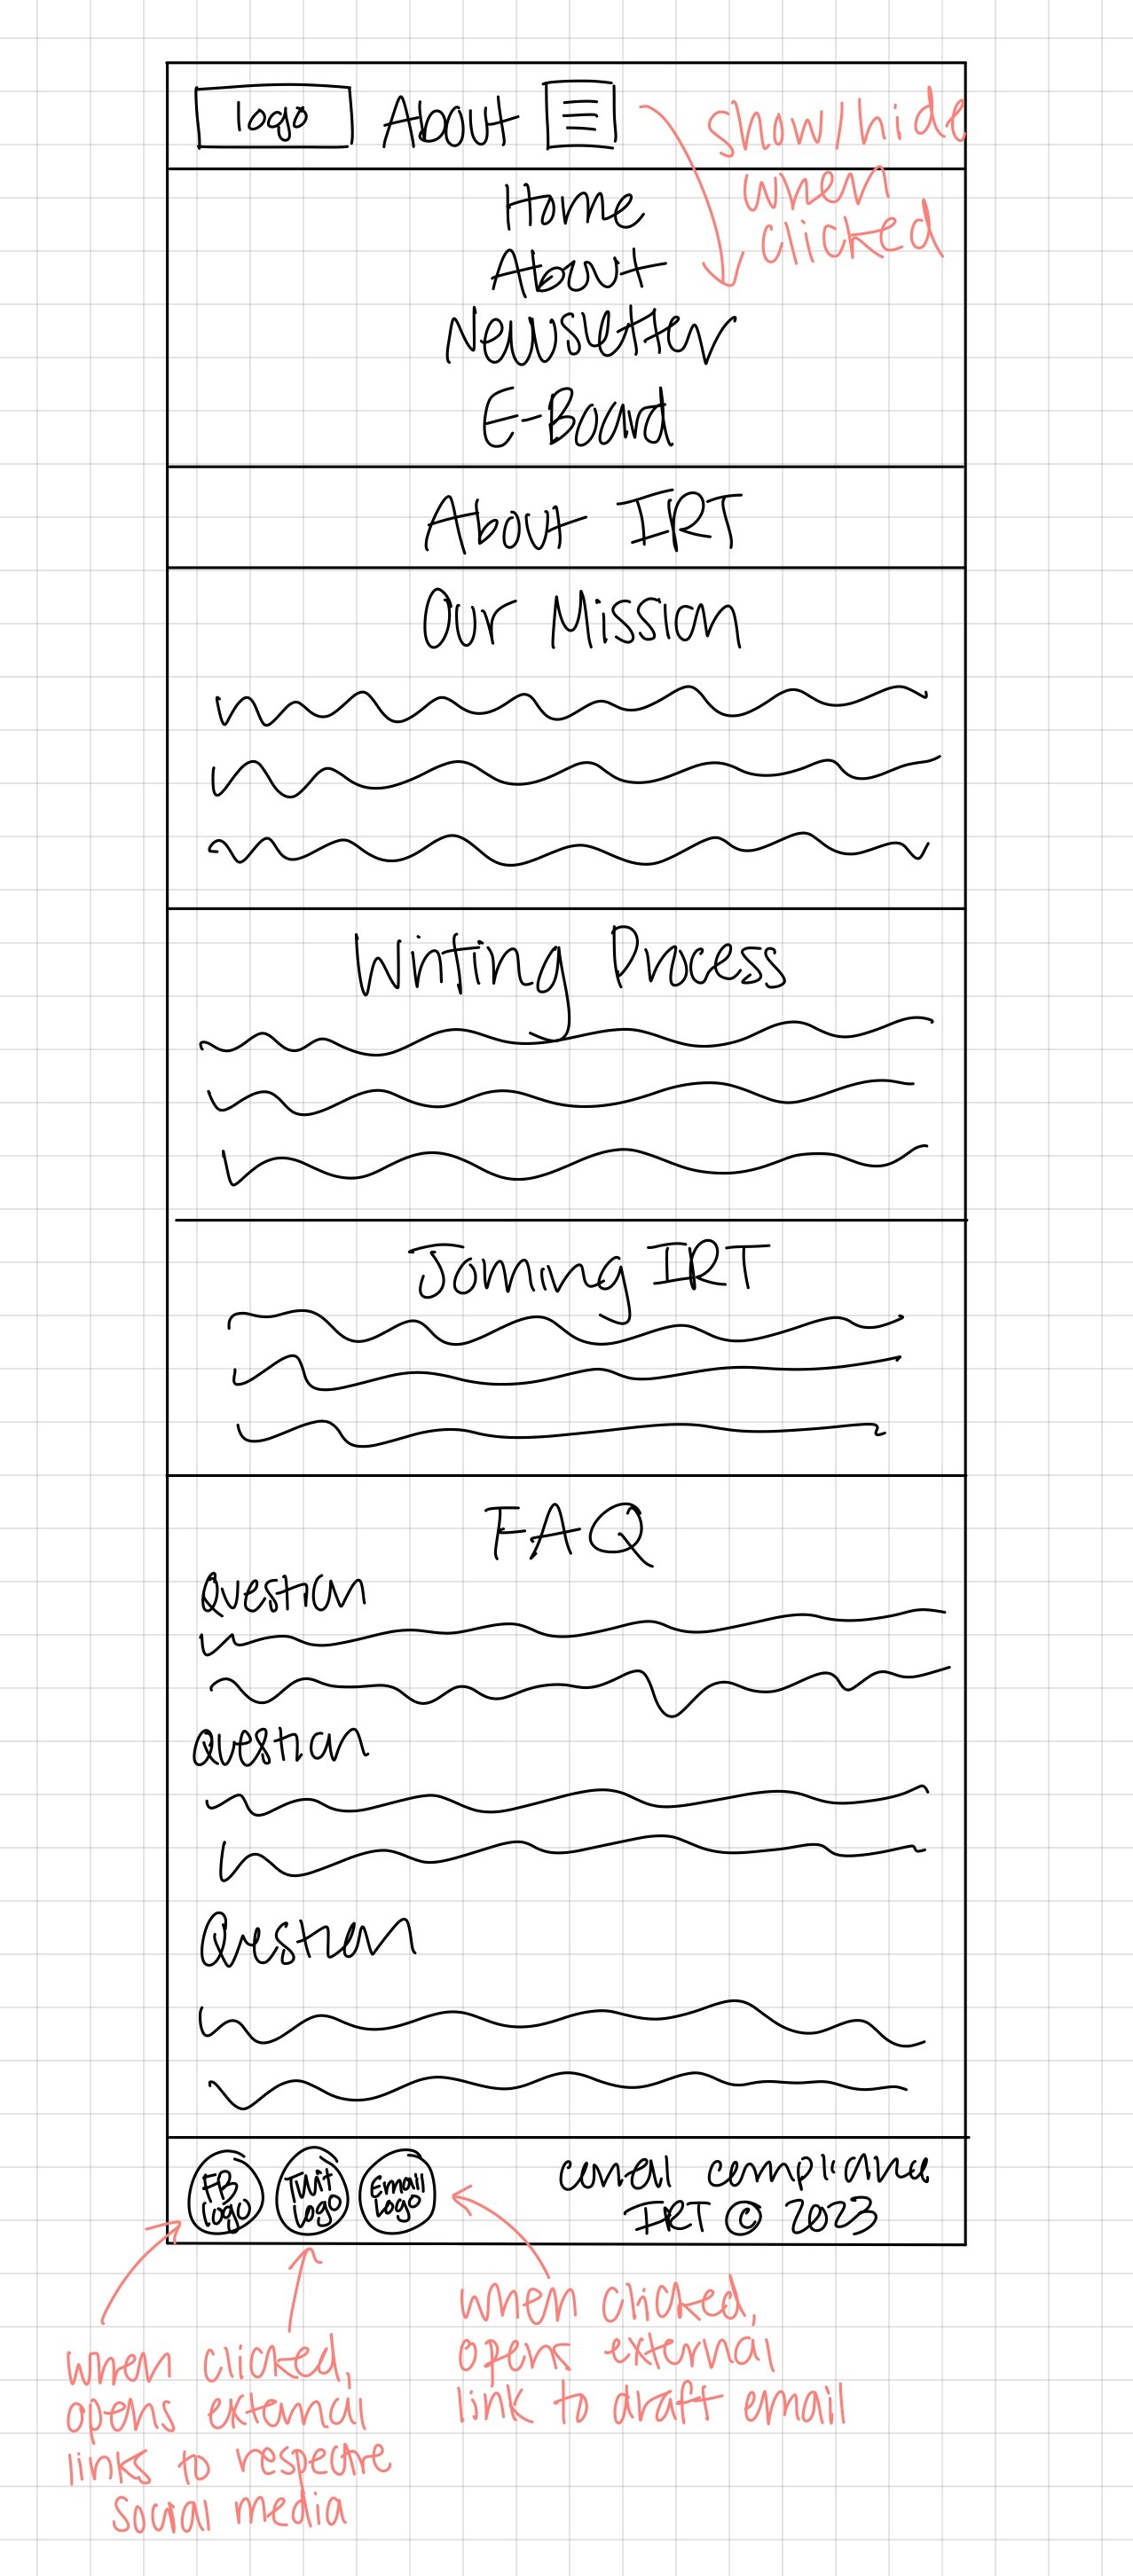 logo About show/hide
when
clicked
Home
About
Newsletter
E-Board
About IRT
Our Mission
Writing Process
Joining IRT
FAQ
Question
Question
Question
FB logo Twit logo Email logo
compliance
IRT © 2023
when clicked,
opens external
links to respective
social media
when clicked,
opens external
link to draft email